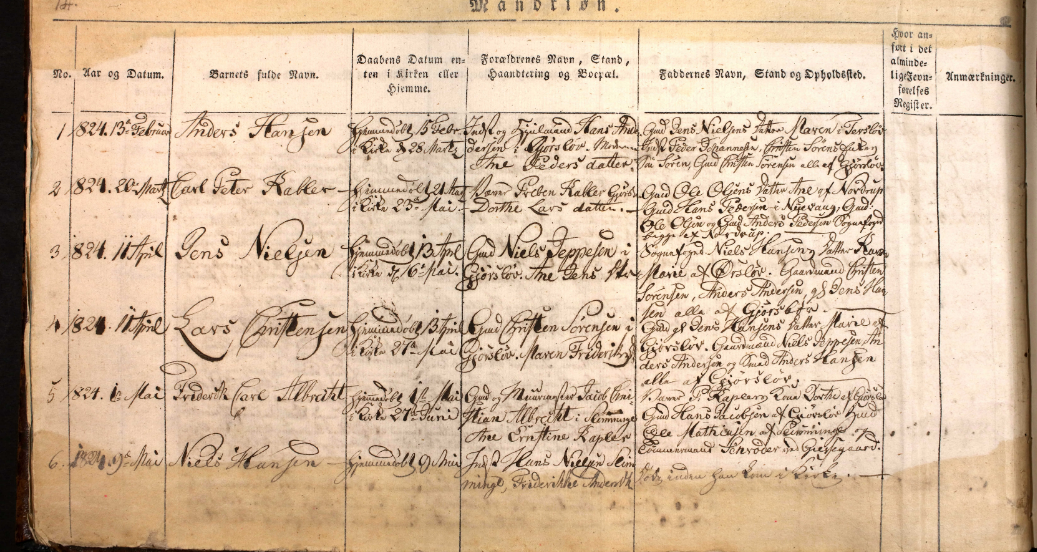 14.
Mandkiøn.
No.
Aar og Datum.
Barnets fulde Navn.
Daabens Datum en-
ten i Kirken eller
Hjemme.
Forældrenes Navn, Stand,
Haandtering og Boepæl.
Faddernes Navn, Stand og Opholdssted.
Hvor an-
ført i det
alminde-
lige Jevn-
førelses
Register.
Anmærkninger.
1
1824. 13de Februar
Anders Hansen
Hjemmedøbt 15 Febr.
i Kirke d 28 Marts
Inds og Hjulmand Hans An-
dersen i Gjørsløv.
Ane Peders datter
Gmd Jens Nielsens Datter Maren i
Peder Johannesen, Christen Sørensen
Søren, Gmd Christen Sørensen alle af Gjørsløv.
2
1824. 20de Marts
Carl Peter Kabler
Hjemmedøbt 21 Marts
i Kirke 23de Mai.
Væver Preben Kabler Gjørsl.
Dorthe Lars datter.
Gmd Ole Olsens Datter Ane af Nordrup
Gmd Hans Pedersen i Gmd
Ole Olsen og Gmd Anders Pedersen Sognefoged
begge af Nordrup.
3
1824. 11 April
Jens Nielsen
Hjemmedøbt 13 April
i Kirke d 16 Mai.
Gmd Niels Jeppesen i
Gjørsløv. Ane Jens Dtr
Sognefoged Niels Hansens Datter Karen
Marie af Ørsløv. Gaardmand Christen
Sørensen, Anders Andersen og Jens Han-
sen alle af Gjørsløv.
4
1824. 11 April
Lars Christensen
Hjemmedøbt 13 April
i Kirke 27de Mai
Gmd Christen Sørensen i
Gjørsløv. Maren Frederiks
Gmd Jens Hansens Datter Marie af
Gjørsløv. Gaardmand Niels Jeppesen An-
ders Andersen og Smed Anders Hansen
alle af Gjørsløv.
5
1824. 1te Mai
Friderich Carl Albrecht
Hjemmedøbt 1te Mai
i Kirke 24de Junii
Gmd og Muurmester Jacob Chri-
stian Albrecht i
Ane Ernstine Kapler
Væver P. Kaplers Kone Dorthe af Gjørsløv
Gmd Hans Jacobsen af Gjørsløv Gmd
Ole Mathiasen af og
Tømmermand Schrøder ved Giesegaard.
6
1824. 9de Mai
Niels Hansen
Hjemmedøbt 9 Mai
Inds Hans Nielsen
Friderikke Andersd.
Døde inden han kom i Kirke.